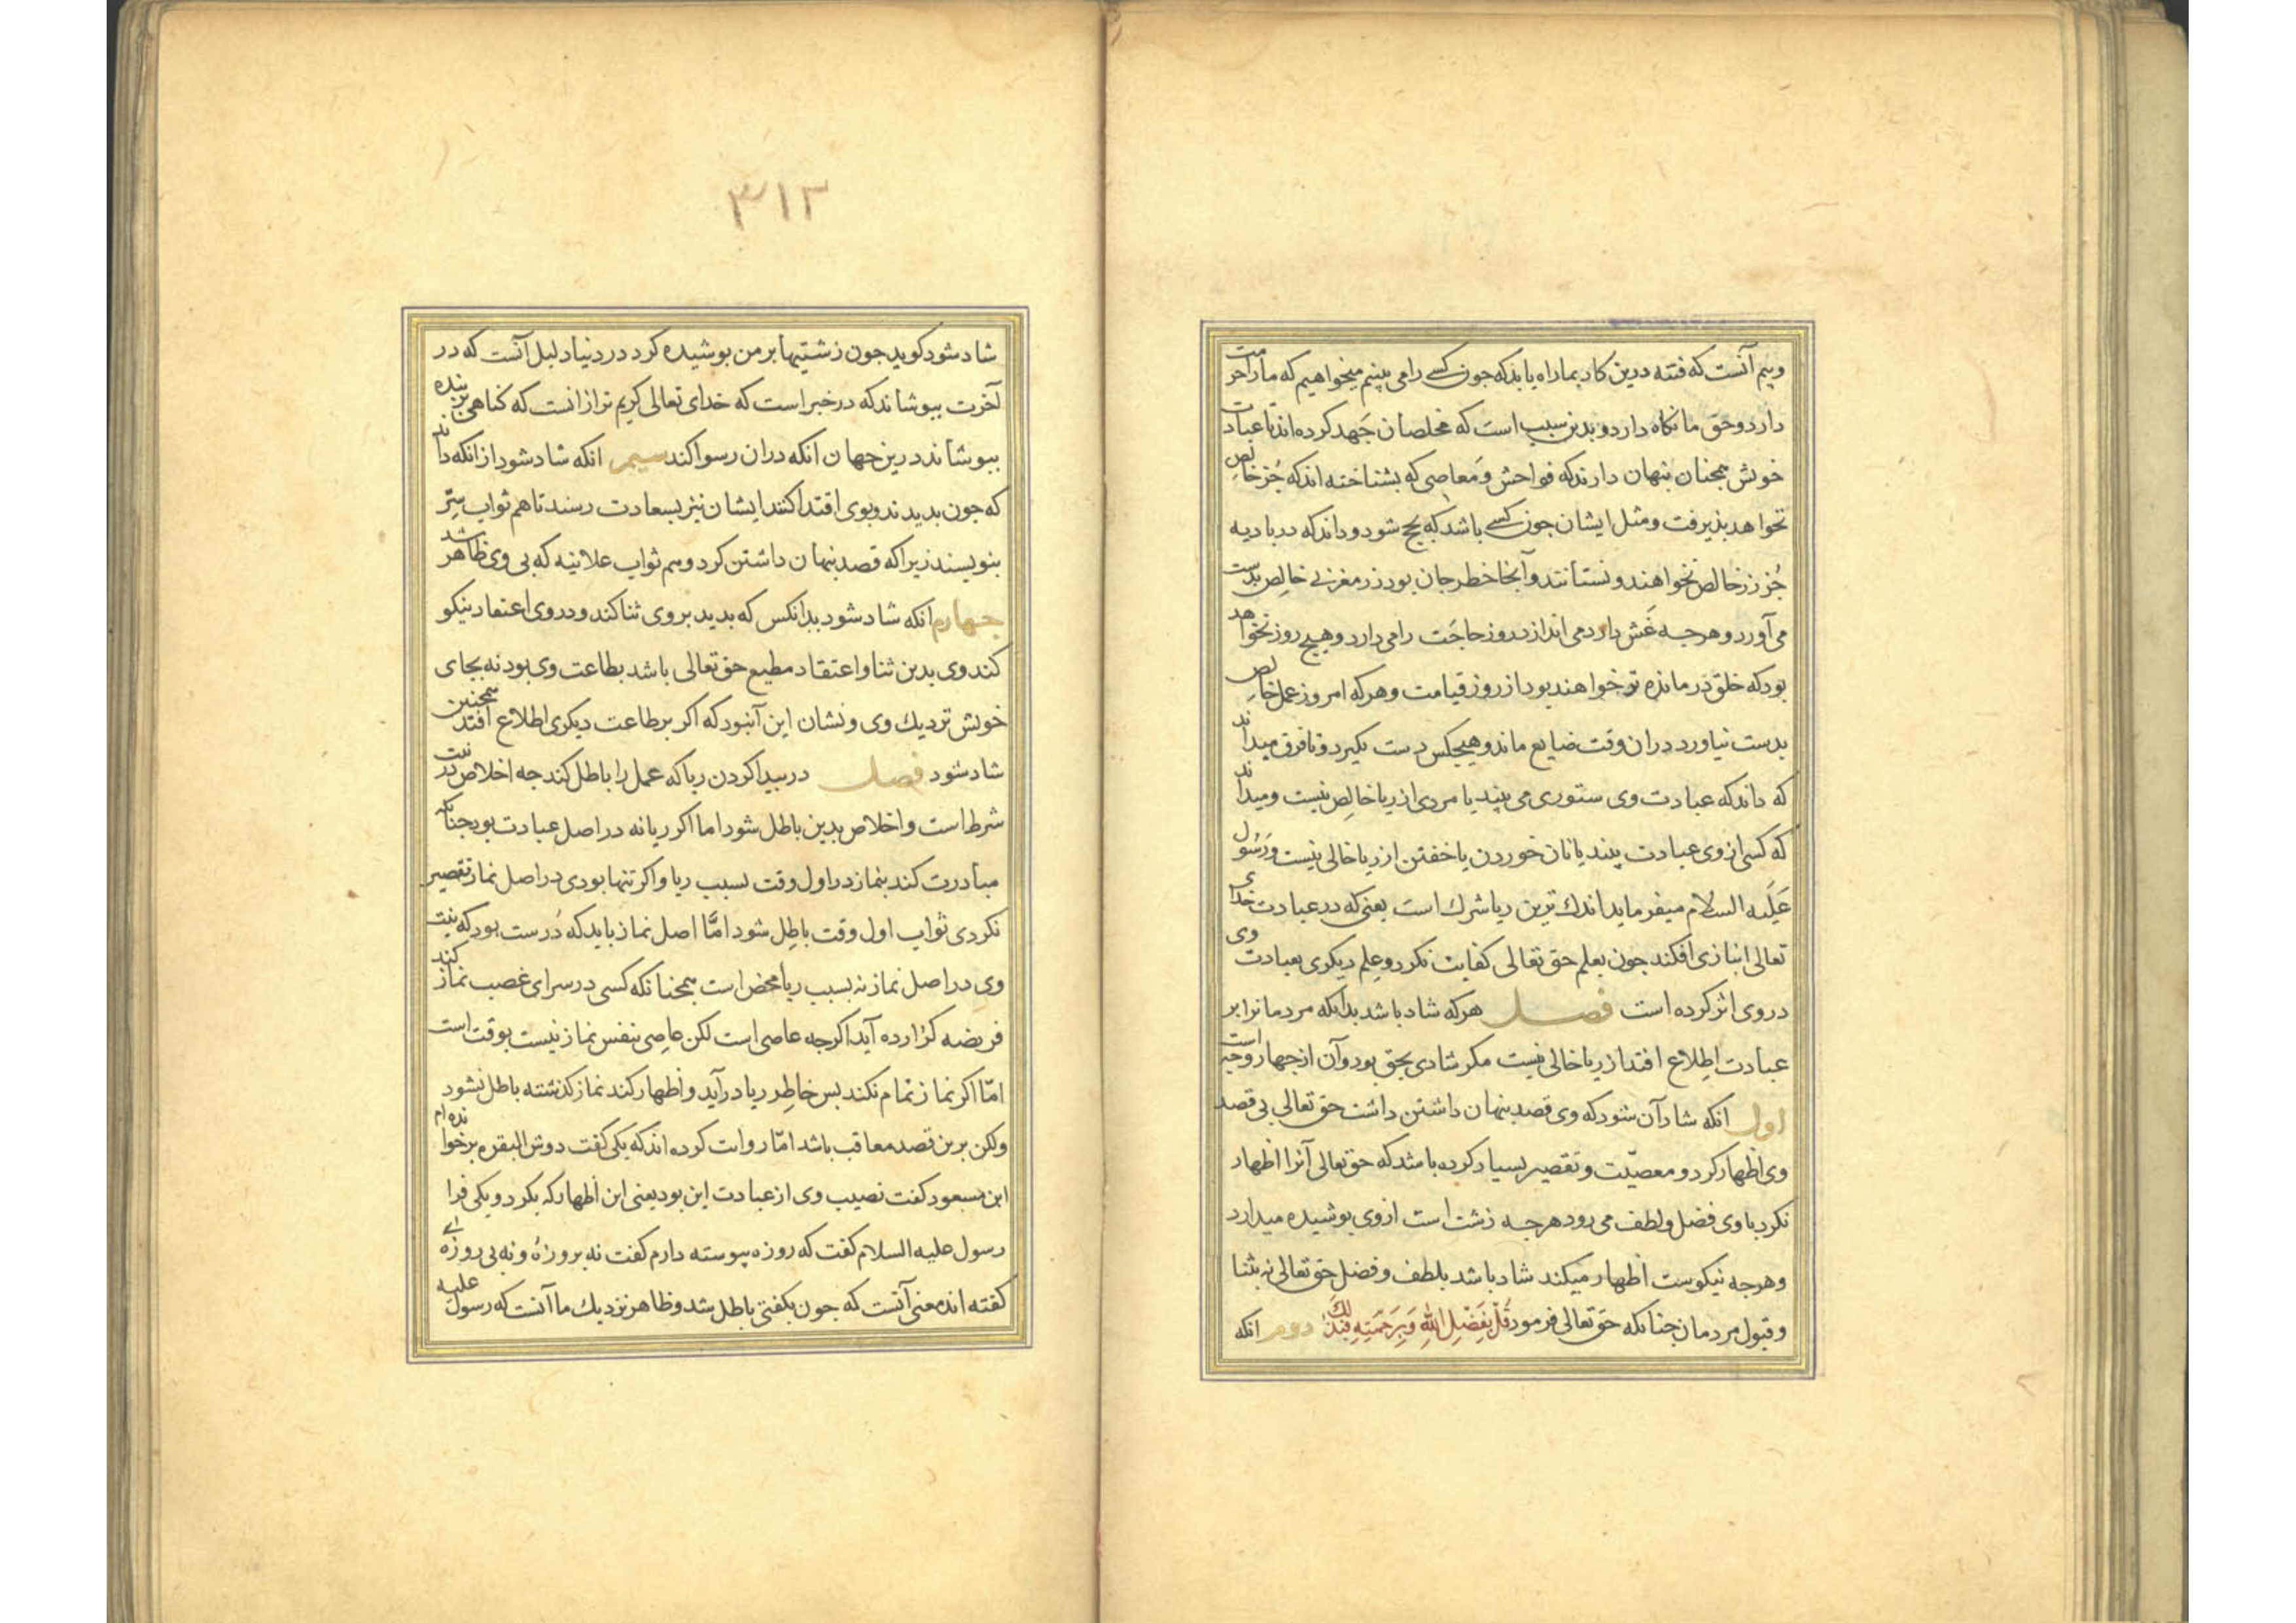 وبیم آنست که فتنه درین کار بما راه یابد که جون کسے را می بینیم میخواهیم که ما را حرمت
دارد وحق ما نکاه دارد و بدین سبب است که مخلصان جَهد کرده اند تا عبادات
خویش همجنان بنهان دارند که فواحش وَمَعاصی که بشناخته اند که جُز خالِص
نخواهد بذیرفت ومثل ایشان جون کسے باشد که بحج شود وداند که در بادیه
جُز زر خالص نخواهند ونستانند وآنجا خطر جان بود زر مغربی خالِص بدست
می آورد وهرجه غَش دارد می اندازد روز حاجَت را می دارد وهیج روز نخواهد
بود که خلق درمانده تر خواهند بود از روز قیامت وهرکه امروز عمل خالِص
بدست نیاورد دران وقت ضایع ماند وهیجکس دست نکیرد وتا فرق میداند
که داند که عبادت وی ستوری می بیند یا مردی از ریا خالِص نیست ومیداند
که کسی از وی عبادت بیند یا نان خوردن یا خفتن از ریا خالی نیست ورَسُول
عَلَیه السلام میفرماید اندك ترین ریا شرك است یعنی که در عبادت خدای
تعالی انبازی افکند جون بعلم حق تعالی کفایت نکرد وعِلم دیکری بعبادت وی
در وی اثر کرده است فصل هرکه شاد باشد بدانکه مردمانرا بر
عبادت اِطلاع افتد از ریا خالی نیست مکر شادی بحق بود وآن از جهار وجه است
اول انکه شاد آن شود که وی قصد بنهان داشتن داشت حق تعالی بی قصد
وی اظهار کرد و معصیّت وتقصیر بسیار کرده باشد که حق تعالی آنرا اظهار
نکرد با وی فضل ولطف می رود هرجه زشت است از وی بوشیده میدارد
وهرجه نیکوست اظهار میکند شاد باشد بلطف وفضل حق تعالی نه بثنا
وقبول مردمان جنانکه حَق تعالی فرمود قُلْ بِفَضْلِ اللهِ وَبِرَحْمَتِهِ فَبِذَلِكَ دوم انکه
٣١٣
شاد شود کوید جون زشتیها بر من بوشیده کرد در دنیا دلیل آنست که در
آخرت ببوشاند که در خبر است که خدای تعالی کریم تر از انست که کناهی بر بنده
ببوشاند درین جهان انکه دران رسوا کند سیم انکه شاد شود از انکه داند
که جون بدیدند وبوی اقتدا کنند ایشان نیز بسعادت رسند تا هم ثواب سِرّ
بنویسند زیرا که قصد بنهان داشتن کرد وهم ثواب علانیه که بی وی ظاهر شد
جهارم انکه شاد شود بدانکس که بدید بر وی ثنا کند ودر وی اعتقاد نیکو
کند وی بدین ثنا واعتقاد مطیع حق تعالی باشد بطاعت وی بود نه بجای
خویش نزدیك وی ونشان این آنبود که اکر بر طاعت دیکری اطلاع افتد همجنین
شاد شود فصل در بیدا کردن ریا که عمل را باطل کند جه اخلاص در نیت
شرط است واخلاص بدین باطل شود اما اکر ریا نه در اصل عبادت بود جنانکه
مبادرت کند بنماز در اول وقت بسبب ریا واکر تنها بودی در اصل نماز تقصیر
نکردی ثواب اول وقت باطِل شود امَّا اصل نماز باید که دُرست بود که نیت
وی در اصل نماز نه بسبب ریا محض است همجنانکه کسی در سرای غصب نماز کند
فریضه کزارده آید اکرجه عاصی است لکن عاصِی بنفس نماز نیست بوقت است
امّا اکر نماز تمام نکند بس خاطِر ریا درآید واظهار کند نماز کذشته باطل نشود
ولکن برین قصد معاقب باشد امّا روایت کرده اند که یکی کفت دوش البقره برخوانده ام
ابن مسعود کفت نصیب وی از عبادت این بود یعنی این اظهار که بکرد ویکی فرا
رسول علیه السلام کفت که روزه پیوسته دارم کفت نه بروزهٔ ونه بی روزهٔ
کفته اند معنی آنست که جون بکفتی باطل شد وظاهر نزدیك ما آنست که رسول علیه